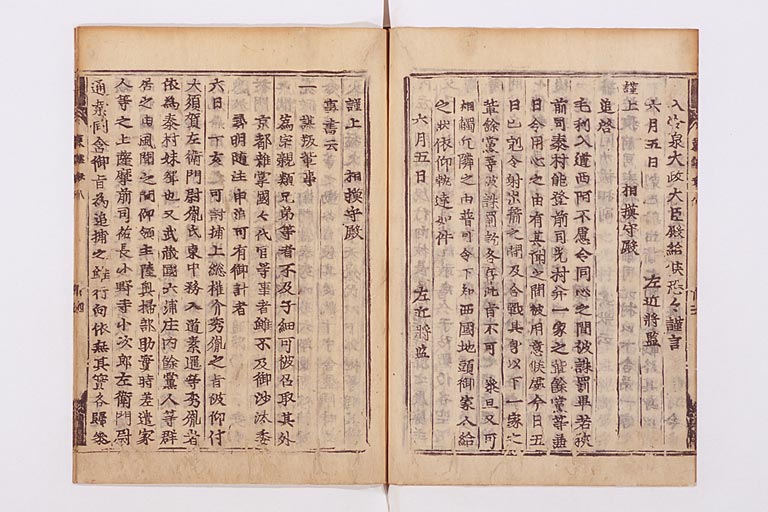 入冷泉大政大臣殿給候恐々謹言
六月五日 左近將監
謹上 相摸守殿
追啓
毛利入道西阿不慮令同心之間被誅罰畢若狹
前司泰村能登前司光村并一家之輩餘黨等兼
日令用心之由有其聞之間被用意候處今日五
日巳刻令射出箭之間及合戰其身以下一家之
輩餘黨等被誅罰訖各存此旨不可 參且又可
相觸近隣之由普可令下知西國地頭御家人給
之狀依仰執達如件
六月五日 左近將監
謹上 相摸守殿
事書云
謀叛輩事
為宗親類兄弟等者不及子細可被召取其外
京都雜掌國々代官等事者雖不及御沙汰委
尋明隨注申追可有御計者
六日 丁亥 可討捕上總權介秀胤之旨被仰付
大須賀左衛門尉胤氏東中務入道素暹等秀胤者
依為泰村妹聟也又武藏國六浦庄内餘黨人等群
居之由風聞之間仰領主陸奥掃部助實時差遣家
人等之上薩摩前司祐長小野寺小次郎左衛門尉
通業同含御旨為追捕之雖行向依無其實各歸參